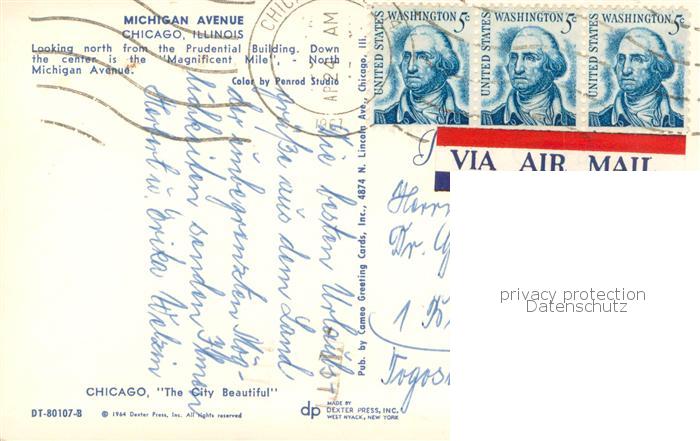 MICHIGAN AVENUE
CHICAGO, ILLINOIS
Looking north from the Prudential Building. Down
the center is the "Magnificent Mile" - North
Michigan Avenue.
Color by Penrod Studio
CHICAGO
AM
1967
UNITED STATES
WASHINGTON 5c
UNITED STATES
WASHINGTON 5c
UNITED STATES
WASHINGTON 5c
VIA AIR MAIL
Die besten Urlaubs-
grüße aus dem Land
der unbegrenzten Mög-
lichkeiten senden Ihnen
Herbert u. Erika
Pub. by Cameo Greeting Cards, Inc., 4874 N. Lincoln Ave., Chicago, Ill.
Herrn
Dr. G
1 B
Jugos
privacy protection
Datenschutz
CHICAGO, "The City Beautiful"
DT-80107-B
© 1964 Dexter Press, Inc. All rights reserved
dp
MADE BY
DEXTER PRESS, INC.
WEST NYACK, NEW YORK